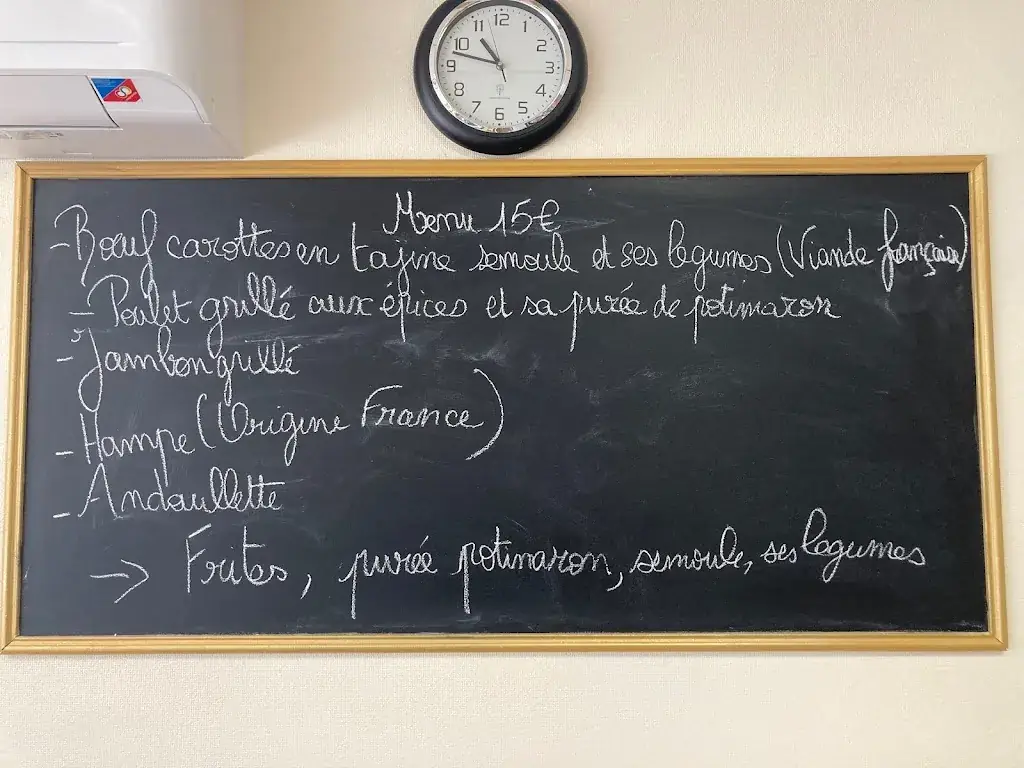 12
11 1
10 2
9 3
8 4
7 5
6
Menu 15€
- Bœuf carottes en tajine semoule et ses legumes (Viande française)
- Poulet grillé aux épices et sa purée de potimaron
- Jambon grillé
- Hampe (Origine France)
- Andouillette
→ Frites, purée potimaron, semoule, ses legumes